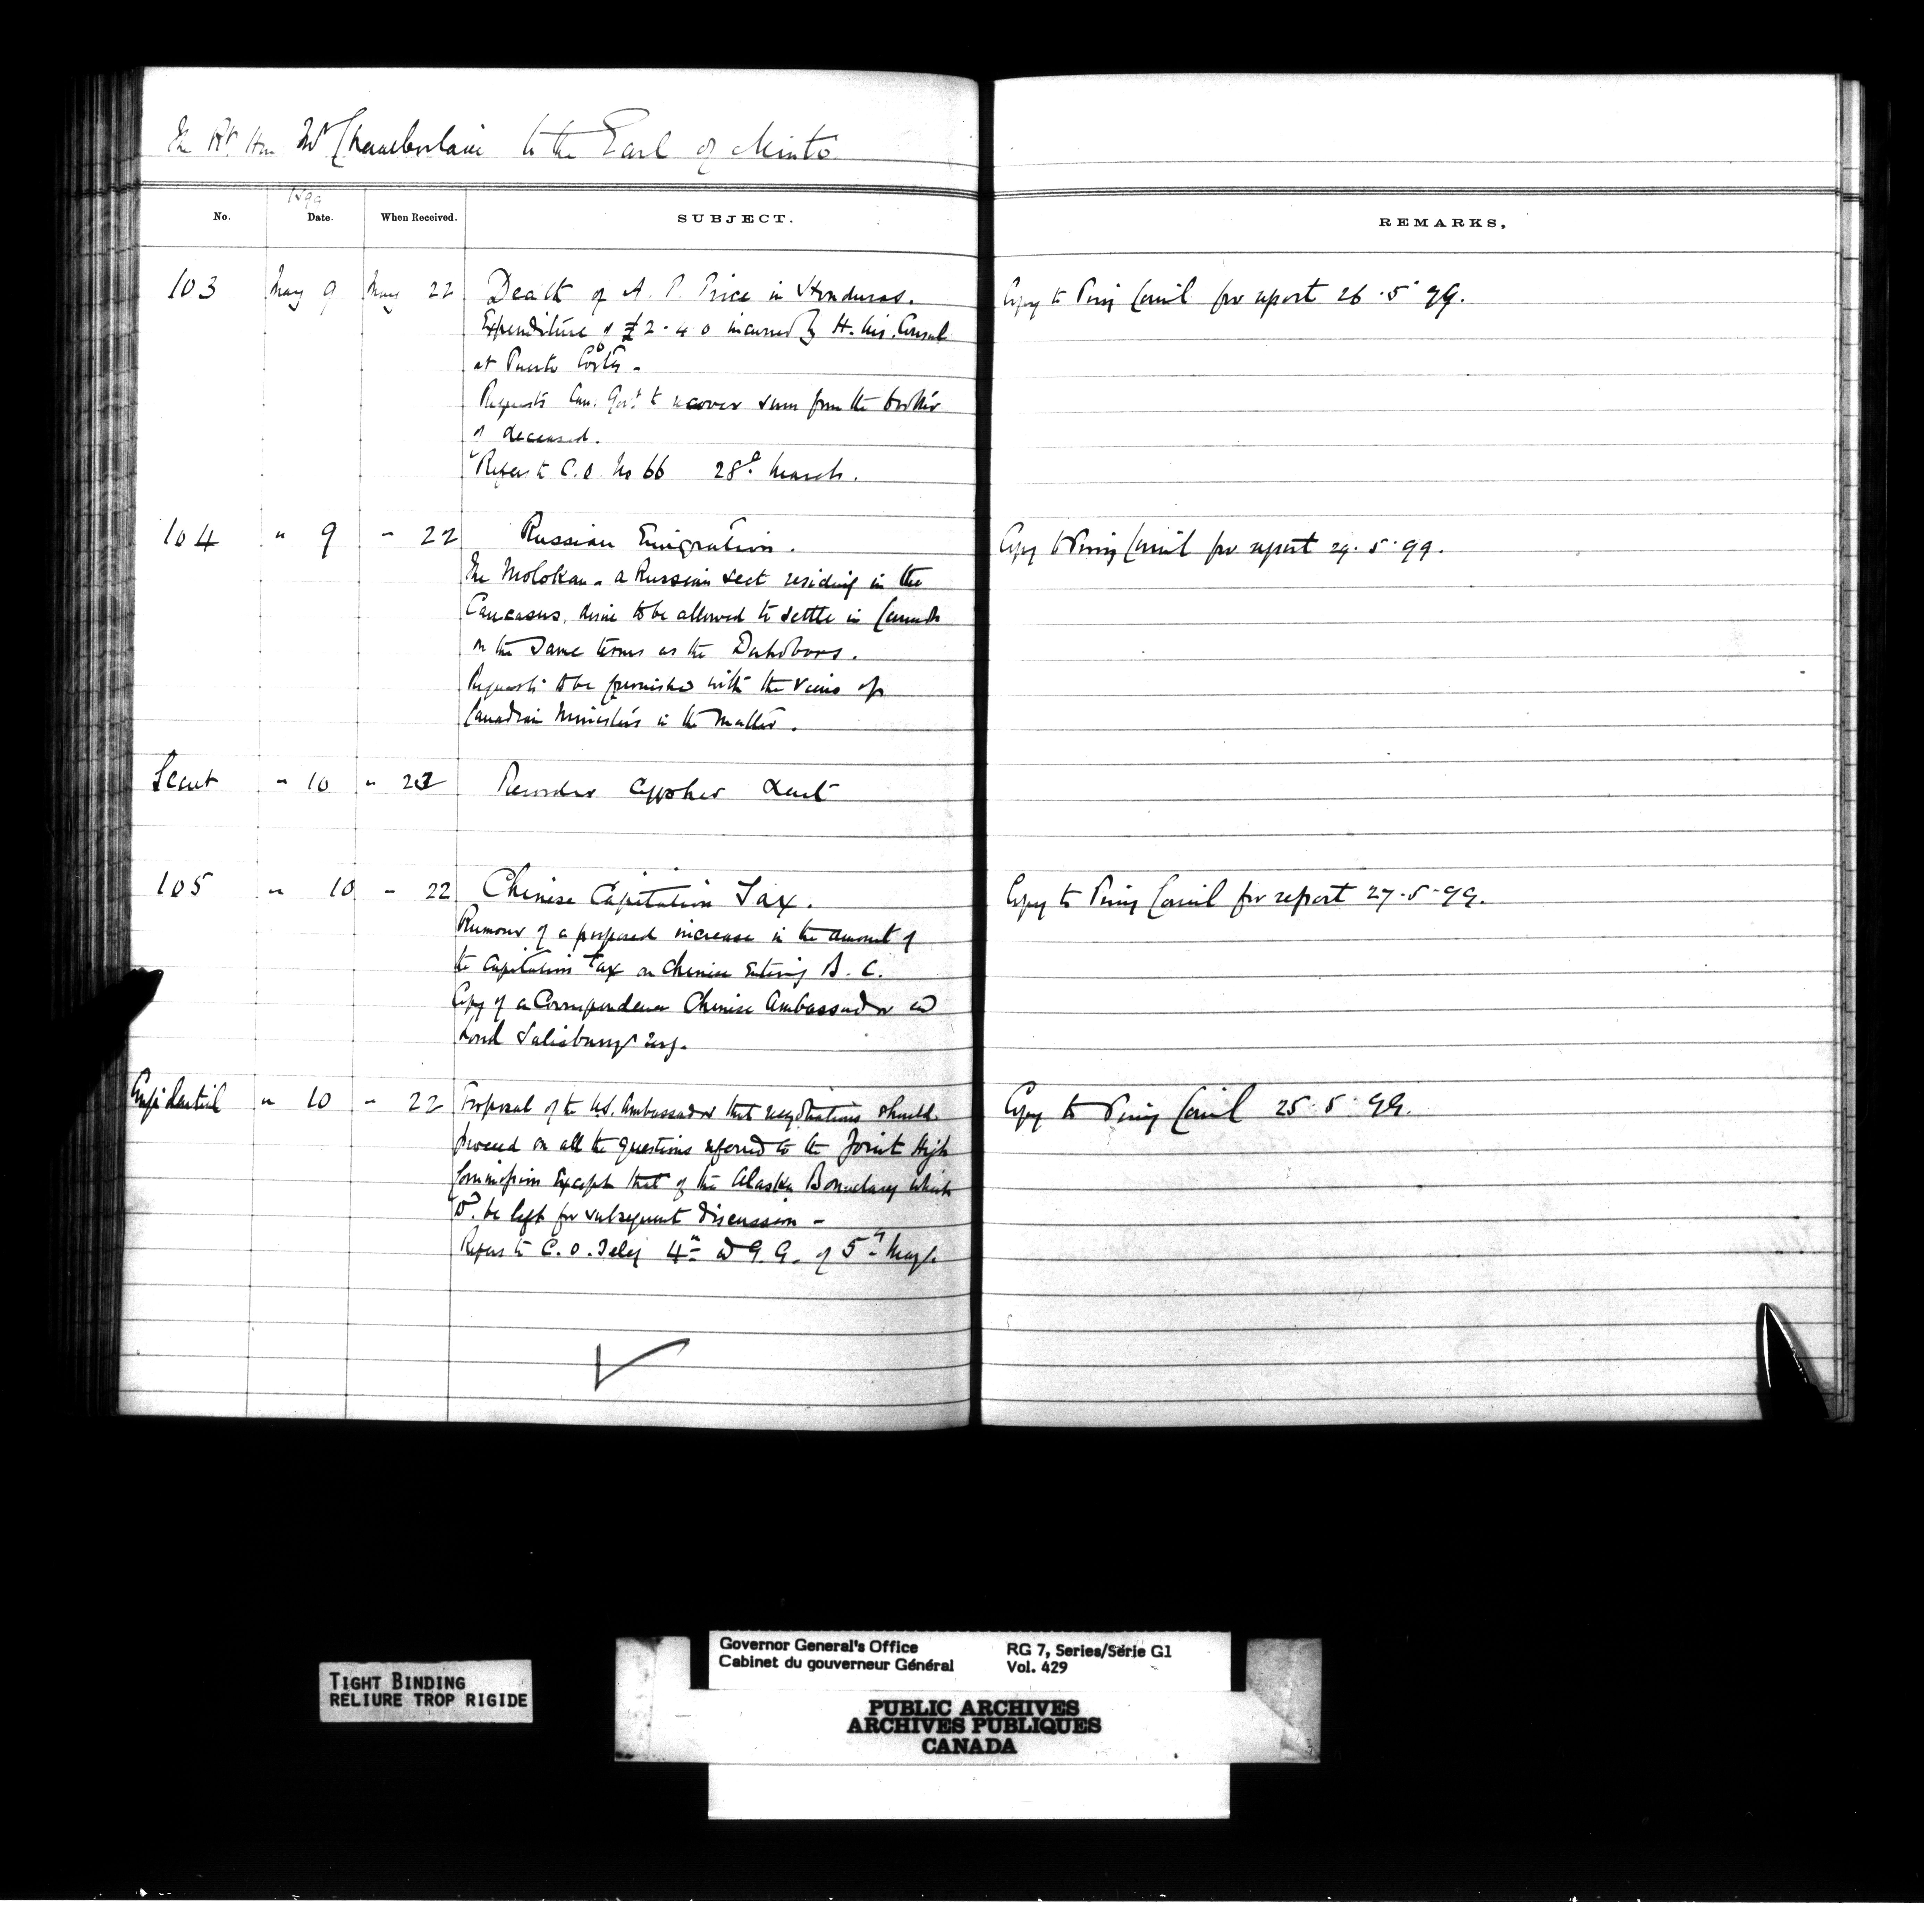 The Rt. Hon Mr Chamberlain to the Earl of Minto
1899
No. Date. When Received. SUBJECT. REMARKS.
103 May 9 May 22 Death of A. P. Price in Honduras. Copy to Privy Council for report 26.5.99.
Expenditure of £2.4.0 incurred by H. M's. Consul
at Puerto Cortes.
Requests Can. Govt. to recover sum from the brother
of deceased.
Refers to C.O. No 66 28th March.
104 " 9 " 22 Russian Emigration. Copy to Privy Council for report 29.5.99.
The Molokan - a Russian sect residing in the
Caucasus, desire to be allowed to settle in Canada
on the same terms as the Dukobors.
Requests to be furnished with the views of
Canadian Ministers in the matter.
Secret " 10 " 22 Cypher Sent
105 " 10 " 22 Chinese Capitation Tax. Copy to Privy Council for report 27.5.99.
Rumour of a proposed increase in the amount of
the Capitation Tax on Chinese entering B.C.
Copy of a Correspondence Chinese Ambassador and
Lord Salisbury
Confidential " 10 " 22 Proposal of the U.S. Ambassador that negotiations should Copy to Privy Council 25.5.99.
proceed on all the questions referred to the Joint High
Commission except that of the Alaska Boundary which
wd. be left for subsequent discussion -
Refers to C.O. Teleg 4th and G.G. of 5th May.
TIGHT BINDING
RELIURE TROP RIGIDE
Governor General's Office
Cabinet du gouverneur Général
RG 7, Series/Série G1
Vol. 429
PUBLIC ARCHIVES
ARCHIVES PUBLIQUES
CANADA